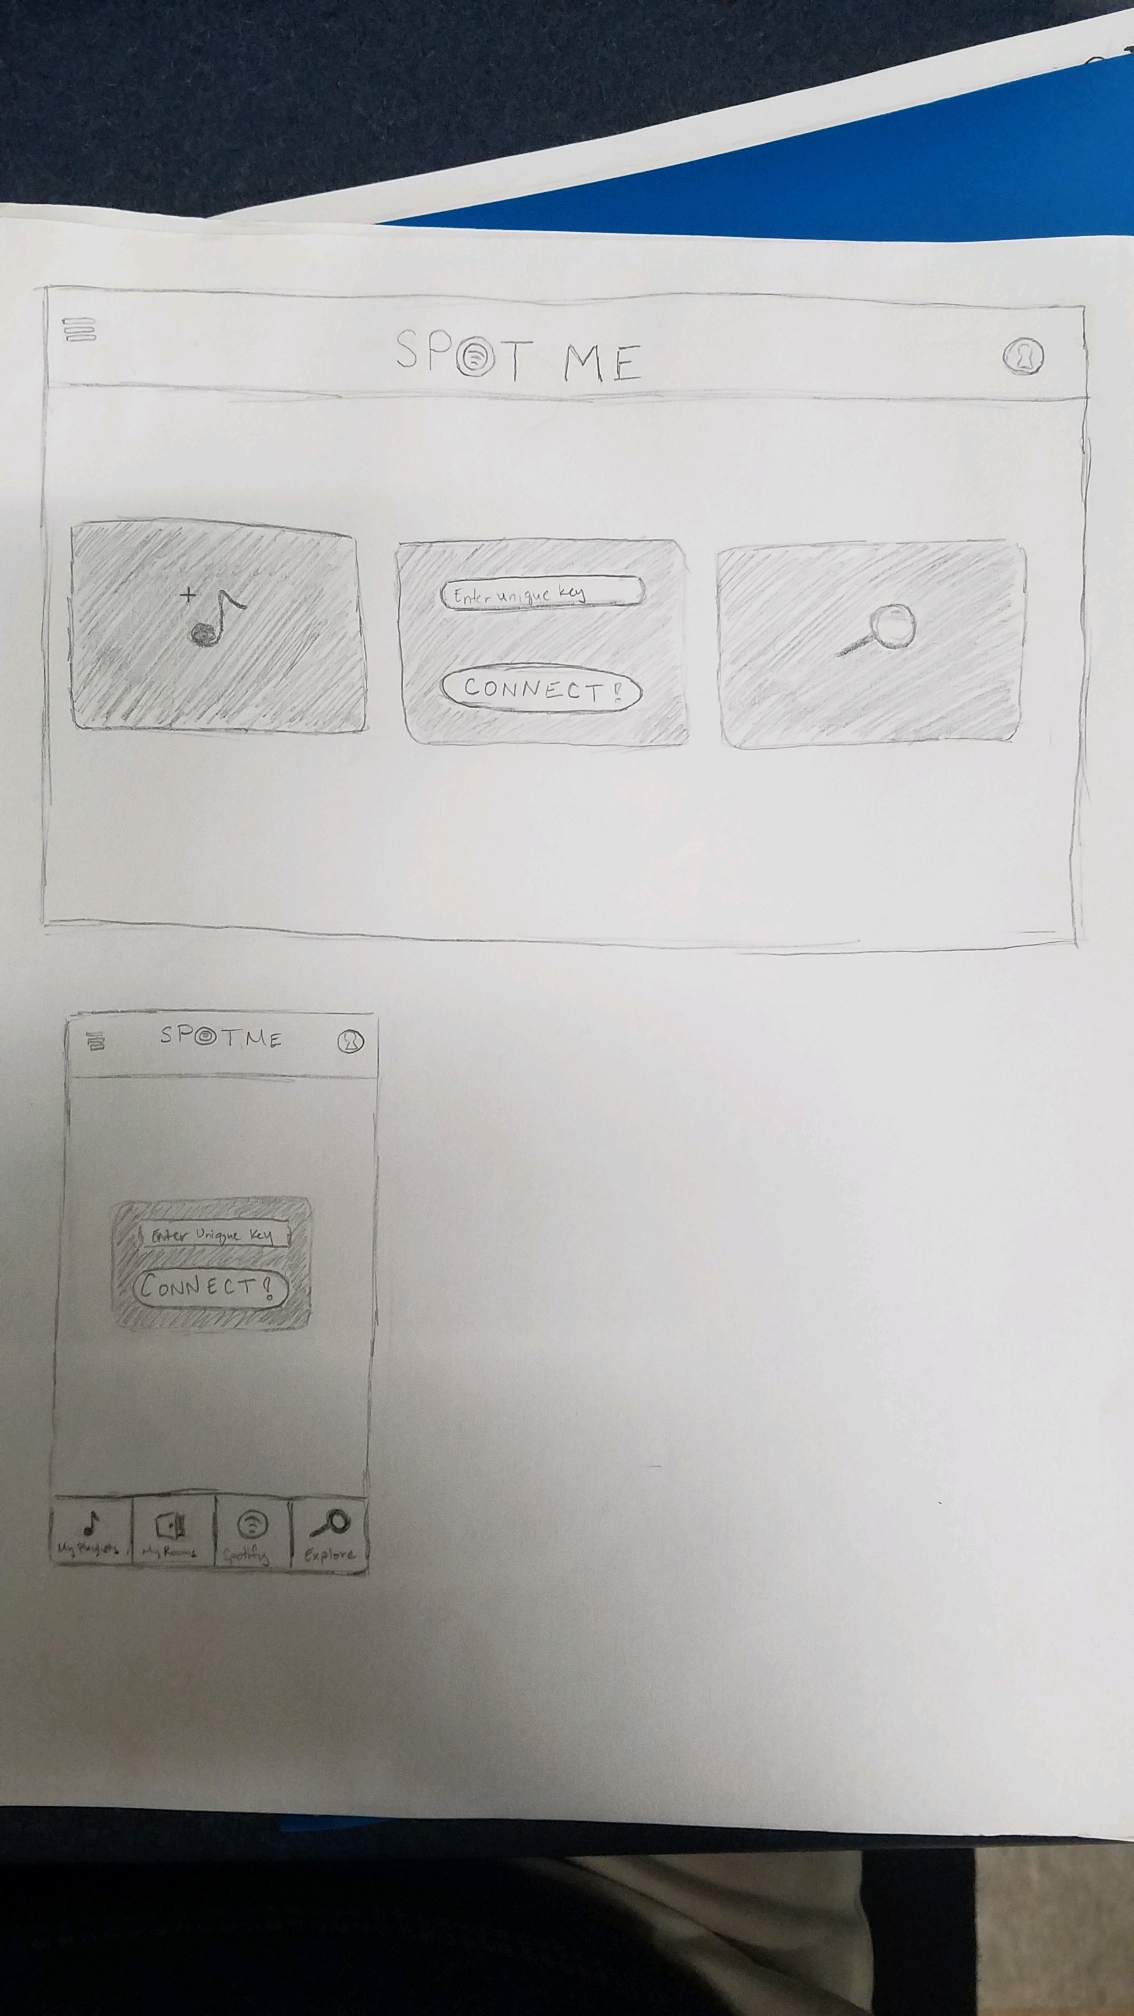 SPOT ME
Enter unique key
CONNECT!
SPOT ME
Enter Unique Key
CONNECT!
My Playlists
My Rooms
Spotify
Explore